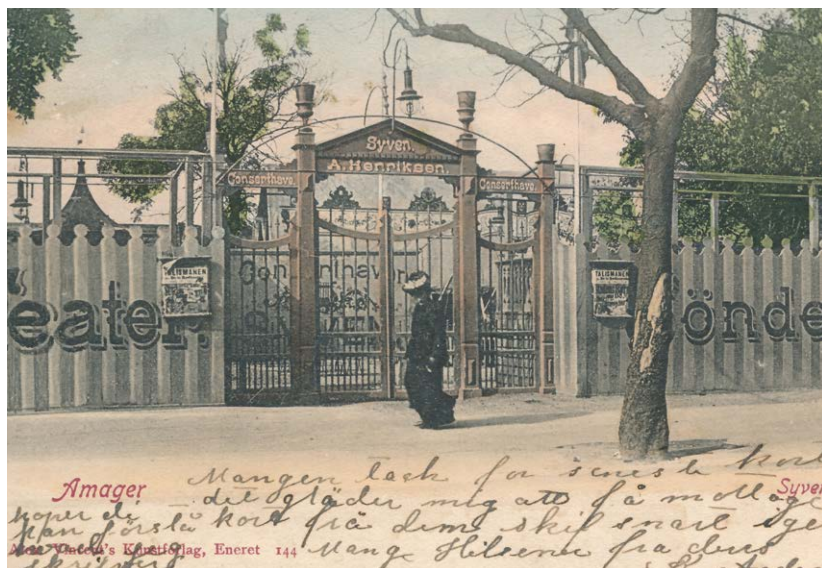 Syven.
A. Henriksen.
Conserthave.
Conserthave.
Conserthaven
TALISMANEN
TALISMANEN
eater.
önde
Amager
Syven
Mangen tack for seneste kort
det gläder mig att få mottage
hoper de
kan förstå kort frå dem skif snart ige
Alex. Vincent's Kunstforlag, Eneret 144
Mange Hilsener fra deres
skrifver